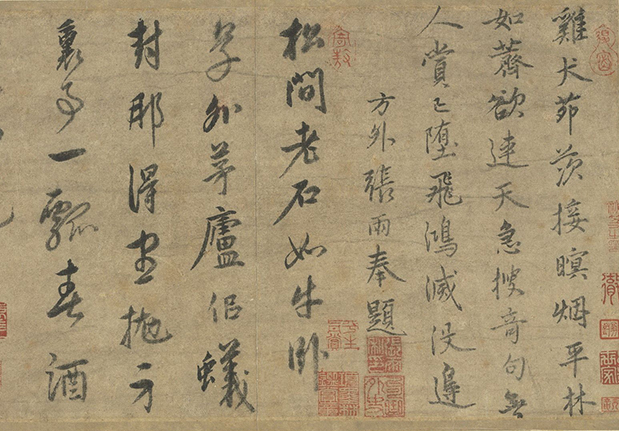 雞犬茆茨接暝烟平林
如薺欲連天急搜奇句無
人賞已墮飛鴻滅没邊
方外張雨奉題
松間老石如牛卧
外茅廬侣蟻
封那得盡抛
裏事一瓢春酒